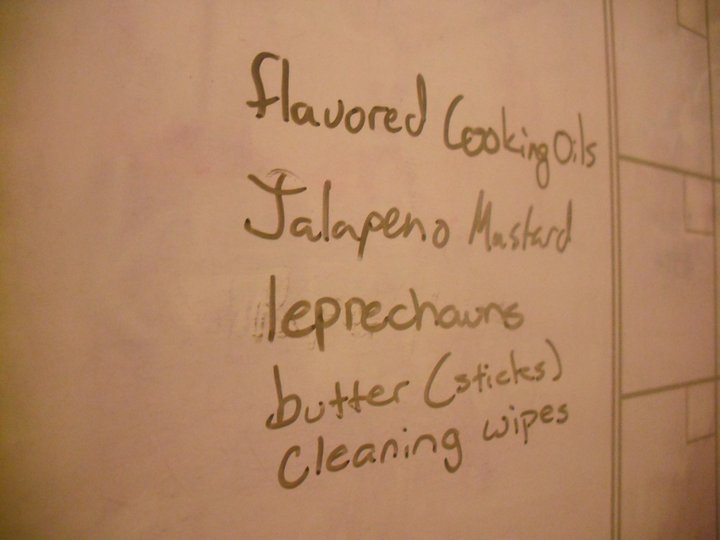 flavored Cooking Oils
Jalapeno Mustard
leprechauns
butter (sticks)
Cleaning wipes